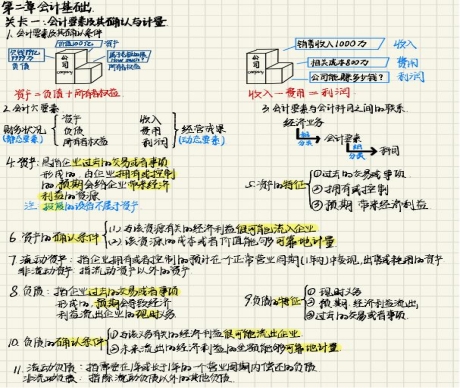 第二章会计基础
关卡一:会计要素及其确认与计量
1. 会计要素及其确认条件
价值100亿 资产
公司
company
负债
所有者权益
资产=负债+所有者权益
销售收入1000万 收入
相关成本800万 费用
公司能赚多少钱? 利润
公司
company
收入-费用=利润
2. 会计六要素
财务状况
(静态要素)
资产
负债
所有者权益
收入
费用
利润
经营成果
(动态要素)
3. 会计要素与会计科目之间的联系
经济业务
分类
会计要素
分类
科目
4. 资产:是指企业过去的交易或者事项
形成的,由企业拥有或控制
的,预期会给企业带来经济
利益的资源
注:
5. 资产的特征
①过去的交易或事项
②拥有或控制
③预期带来经济利益
6 资产的确认条件
(1)与该资源有关的经济利益很可能流入企业
(2)该资源的成本或者价值能够可靠地计量
7. 流动资产:指企业拥有或者控制的预计在一个正常营业周期(1年)中变现,出售或耗用的资产
非流动资产:指流动资产以外的资产
8 负债:指企业过去的交易或者事项
形成的,预期会导致经济
利益流出企业的现时义务
9 负债的特征
①现时义务
②预期经济利益流出
③过去的交易或者事项
10. 负债的确认条件
①与该义务有关的经济利益很可能流出企业
②未来流出的经济利益的金额能够可靠地计量
11. 流动负债:指需要在1年或长于1年的一个营业周期内偿还的负债
非流动负债:指除流动负债以外的其他负债